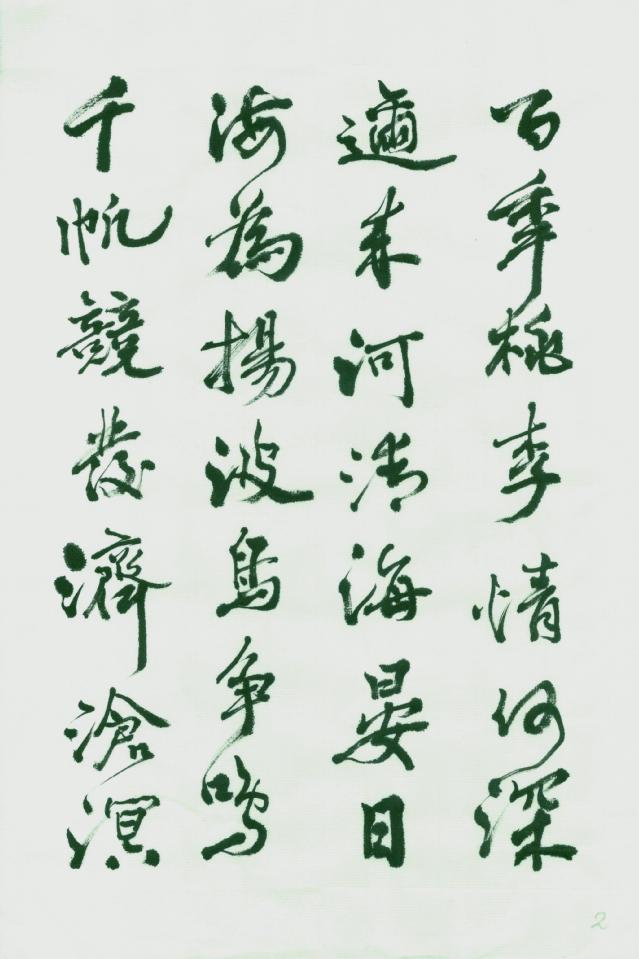 百年桃李情何深
迩来河清海晏日
海为揚波鳥争鳴
千帆競發濟滄溟
2